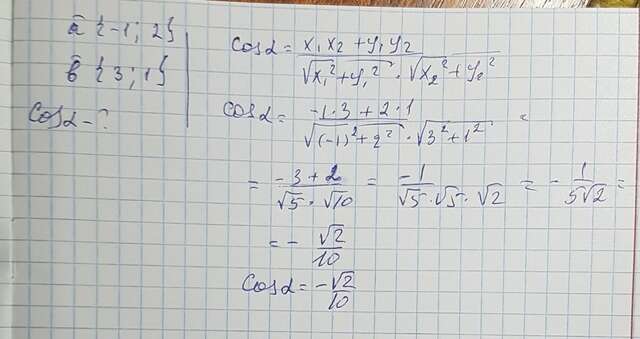 a̅ {-1; 2}
b̅ {3; 1}
Cosα - ?
Cosα = (x₁x₂ + y₁y₂)/(√(x₁² + y₁²) · √(x₂² + y₂²))
Cosα = (-1·3 + 2·1)/(√((-1)² + 2²) · √(3² + 1²)) =
= (-3 + 2)/(√5 · √10) = (-1)/(√5 · √5 · √2) = - 1/(5√2) =
= - √2/10
Cosα = -√2/10